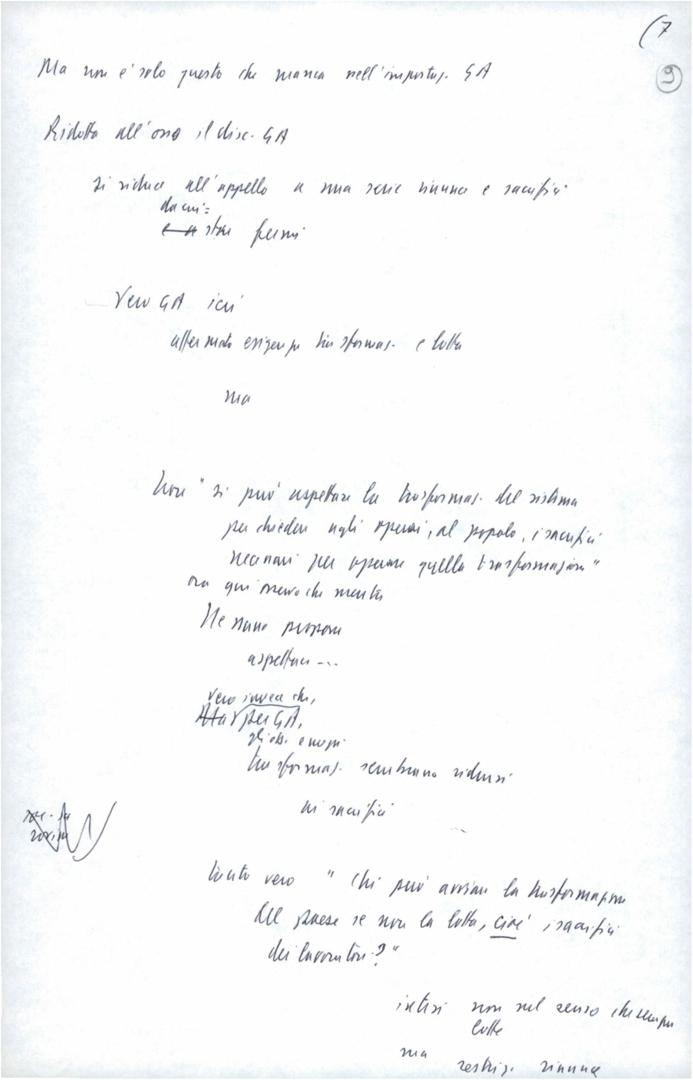 (7
9
Ma non è solo questo che manca nell'impostaz. GA
Ridotto all'osso il disc. GA
si riduce all'appello a una serie rinunce e sacrifici
da cui =
stare fermi
Vero GA ieri
affermato esigenza trasformaz. e lotta
ma
non " si può aspettare la trasformaz. del sistema
per chiedere agli operai, al popolo, i sacrifici
necessari per operare quella trasformazione "
ora qui osservo che
Nessuno propone
aspettare ...
vero invece che,
Ma per GA,
trasformaz. sembrano ridursi
ai sacrifici
tanto vero " Chi può avviare la trasformazione
del paese se non la lotta, cioè i sacrifici
dei lavoratori? "
intesi non nel senso che sempre
lotte
ma
restriz. rinunce